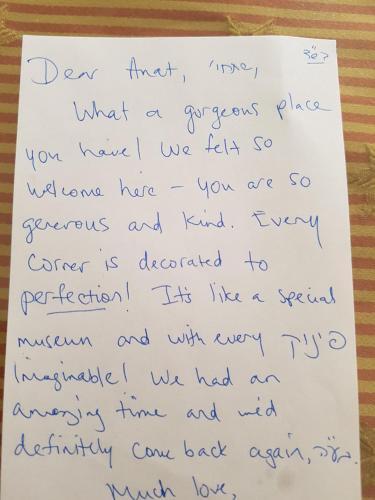 בס"ד
Dear Anat,
What a gorgeous place
you have! We felt so
welcome here - you are so
generous and kind. Every
corner is decorated to
perfection! It's like a special
museum and with every פינוק
imaginable! We had an
amazing time and we'd
definitely come back again, בע"ה.
Much love,